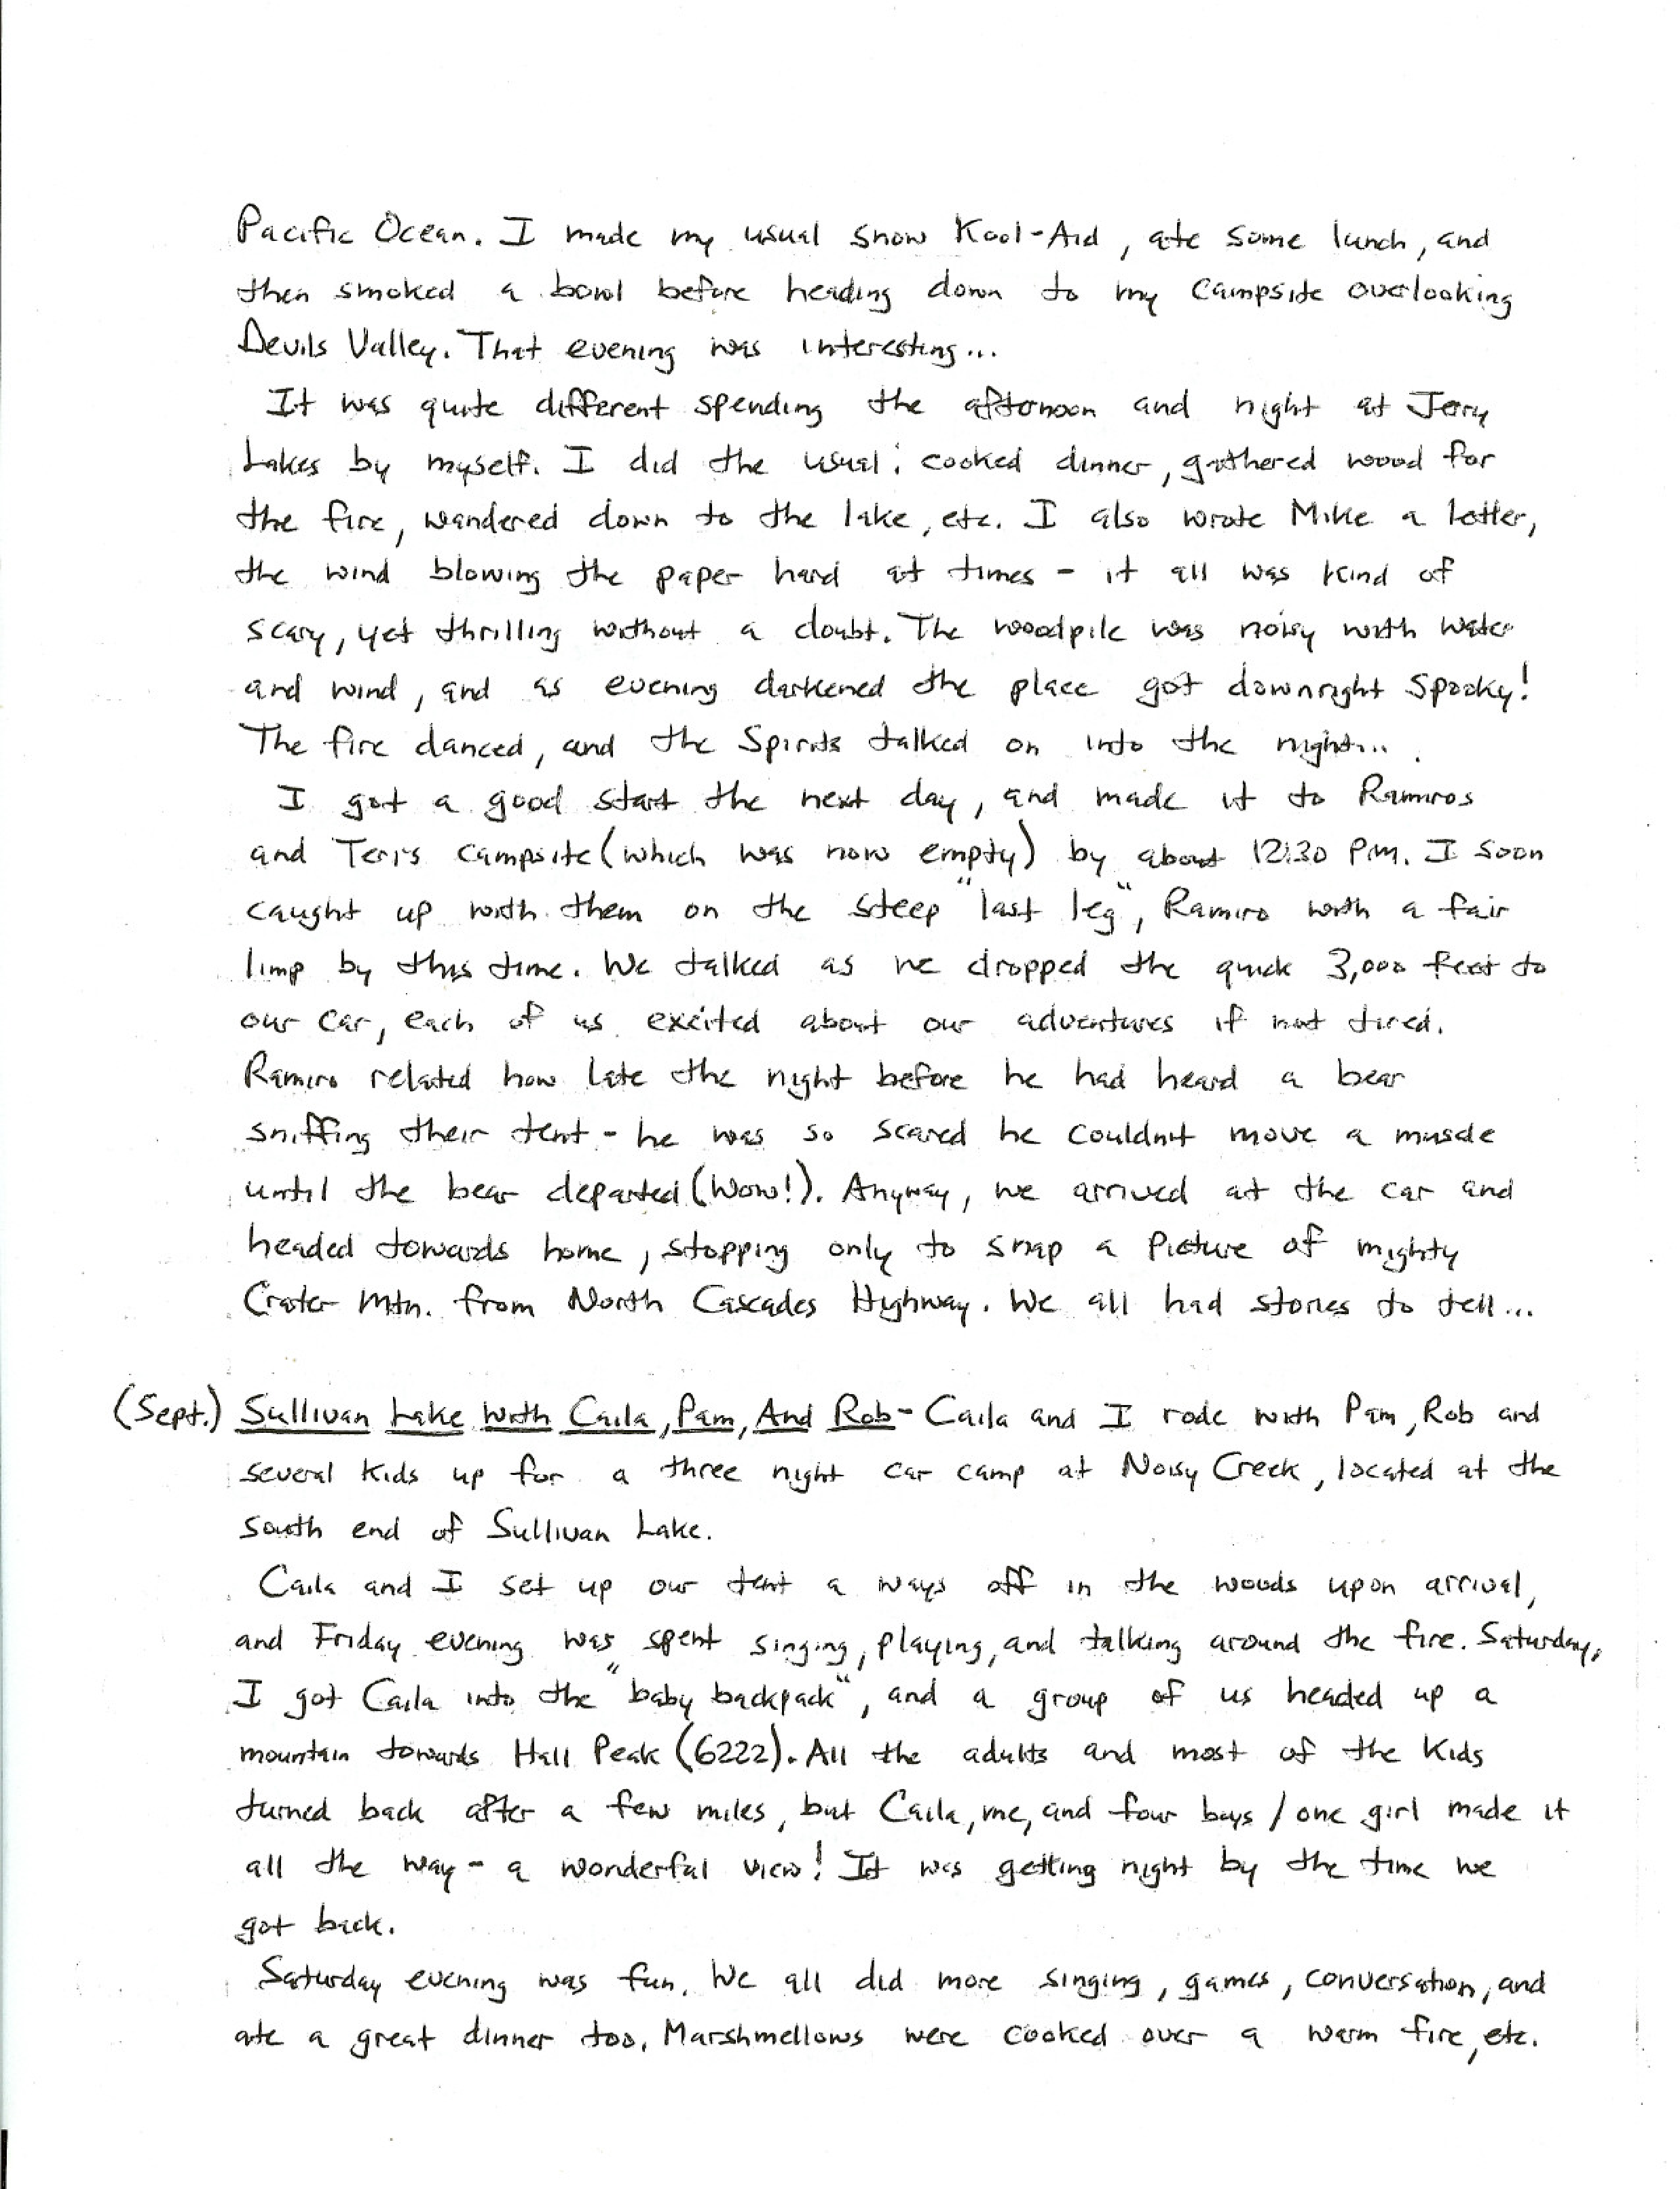 Pacific Ocean. I made my usual snow Kool-Aid, ate some lunch, and
then smoked a bowl before heading down to my campsite overlooking
Devils Valley. That evening was interesting...
It was quite different spending the afternoon and night at Jerry
Lakes by myself. I did the usual: cooked dinner, gathered wood for
the fire, wandered down to the lake, etc. I also wrote Mike a letter,
the wind blowing the paper hard at times - it all was kind of
scary, yet thrilling without a doubt. The woodpile was noisy with water
and wind, and as evening darkened the place got downright spooky!
The fire danced, and the Spirits talked on into the night...
I got a good start the next day, and made it to Ramiros
and Teri's campsite (which was now empty) by about 12:30 P.M. I soon
caught up with them on the steep "last leg", Ramiro with a fair
limp by this time. We talked as we dropped the quick 3,000 feet to
our car, each of us excited about our adventures if not tired.
Ramiro related how late the night before he had heard a bear
sniffing their tent - he was so scared he couldn't move a muscle
until the bear departed (Wow!). Anyway, we arrived at the car and
headed towards home, stopping only to snap a picture of mighty
Crater Mtn. from North Cascades Highway. We all had stories to tell...
(Sept.) Sullivan Lake With Caila, Pam, And Rob - Caila and I rode with Pam, Rob and
several kids up for a three night car camp at Noisy Creek, located at the
south end of Sullivan Lake.
Caila and I set up our tent a ways off in the woods upon arrival,
and Friday evening was spent singing, playing, and talking around the fire. Saturday,
I got Caila into the "baby backpack", and a group of us headed up a
mountain towards Hall Peak (6222). All the adults and most of the kids
turned back after a few miles, but Caila, me, and four boys / one girl made it
all the way - a wonderful view! It was getting night by the time we
got back.
Saturday evening was fun. We all did more singing, games, conversation, and
ate a great dinner too. Marshmellows were cooked over a warm fire, etc.